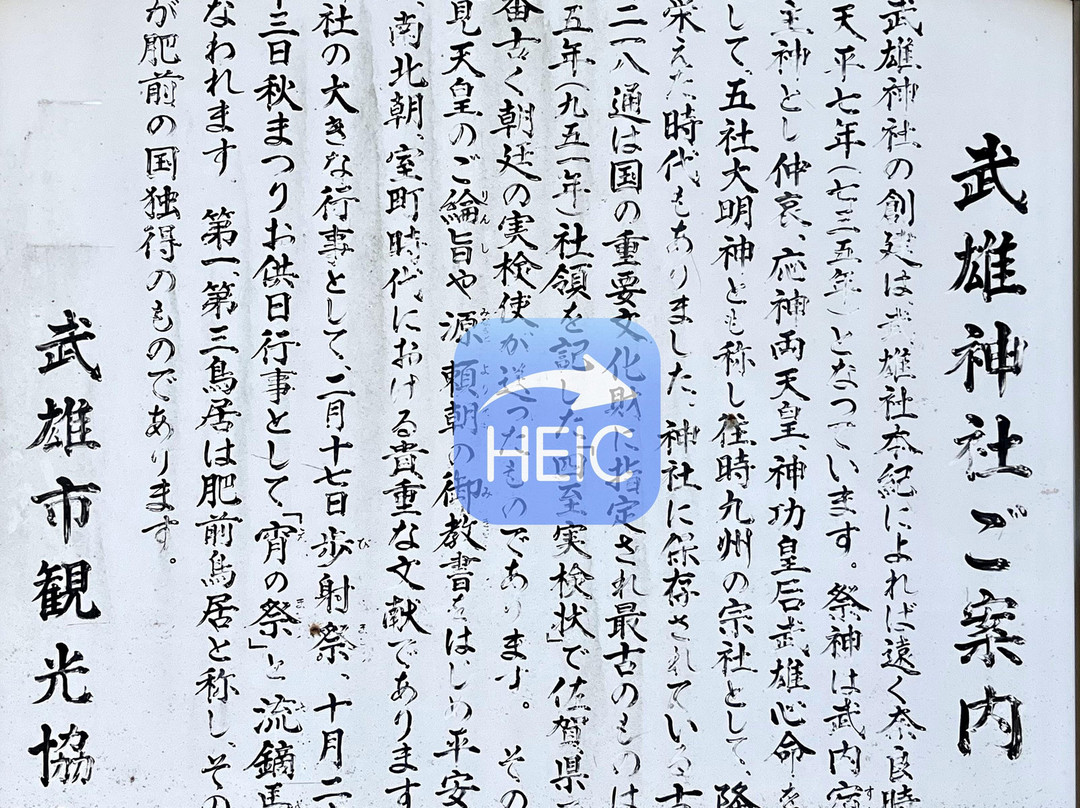 武雄神社ご案内
武雄神社の創建は武雄社本紀によれば遠く奈良時
天平七年(七三五年)となっています。祭神は武内宿
主神とし仲哀、応神両天皇、神功皇后武雄心命を
して、五社大明神とも称し往時九州の宗社として、隆
栄えた時代もありました、神社に保存されている古
二一八通は国の重要文化財に指定され最古のものは
五年(九五一年)社領を記した「四至実検状」で佐賀県
番古く朝廷の実検使が送ったものであります。その
見天皇のご綸旨や源頼朝の御教書をはじめ平安
南北朝、室町時代における貴重な文献であります
社の大きな行事として、二月十七日歩射祭、十月二
十三日秋まつりお供日行事として「宵の祭」と流鏑馬
なわれます 第一、第三鳥居は肥前鳥居と称し、その
が肥前の国独得のものであります。
武雄市観光協
HEIC